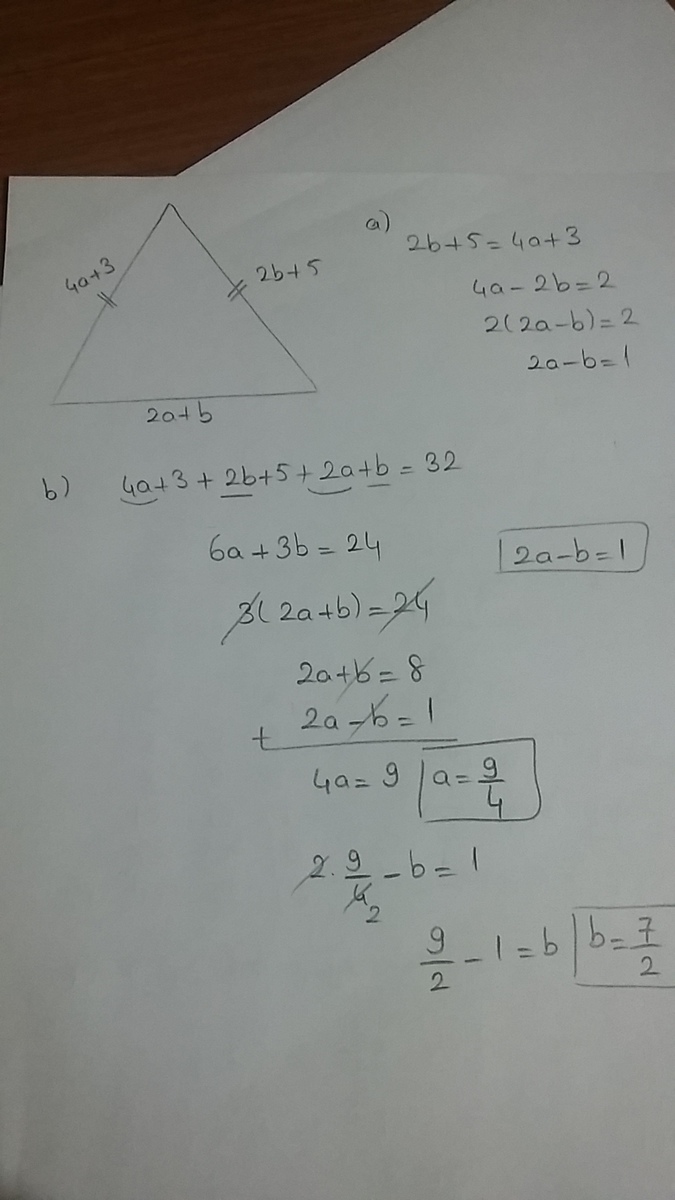 4a+3
2b+5
2a+b
a)
2b+5=4a+3
4a-2b=2
2(2a-b)=2
2a-b=1
b) 4a+3+2b+5+2a+b=32
6a+3b=24
2a-b=1
3(2a+b)=24
2a+b=8
+ 2a-b=1
4a=9 a=9/4
2·9/4 2 -b=1
9/2-1=b b=7/2